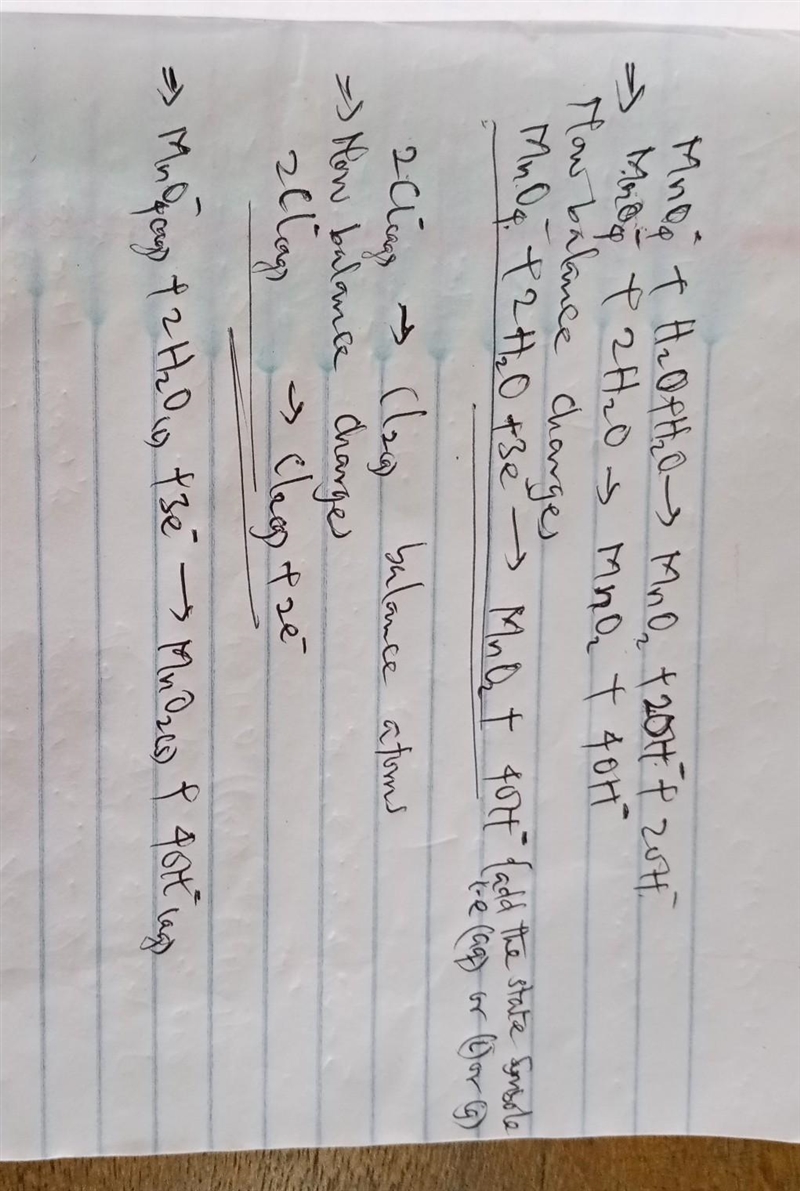 MnO₄⁻ + H₂O+H₂O → MnO₂ + 2OH⁻ + 2OH⁻
⇒ MnO₄⁻ + 2H₂O → MnO₂ + 4OH⁻
Now balance charges
MnO₄⁻ + 2H₂O +3e⁻ → MnO₂ + 4OH⁻ {add the state symbols
i.e (aq) or (l) or (g)
2Cl⁻(aq) → Cl₂(g) balance atoms
⇒ Now balance charges
2Cl⁻(aq) → Cl₂(g) + 2e⁻
⇒ MnO₄⁻(aq) + 2H₂O(l) +3e⁻ → MnO₂(s) + 4OH⁻(aq)